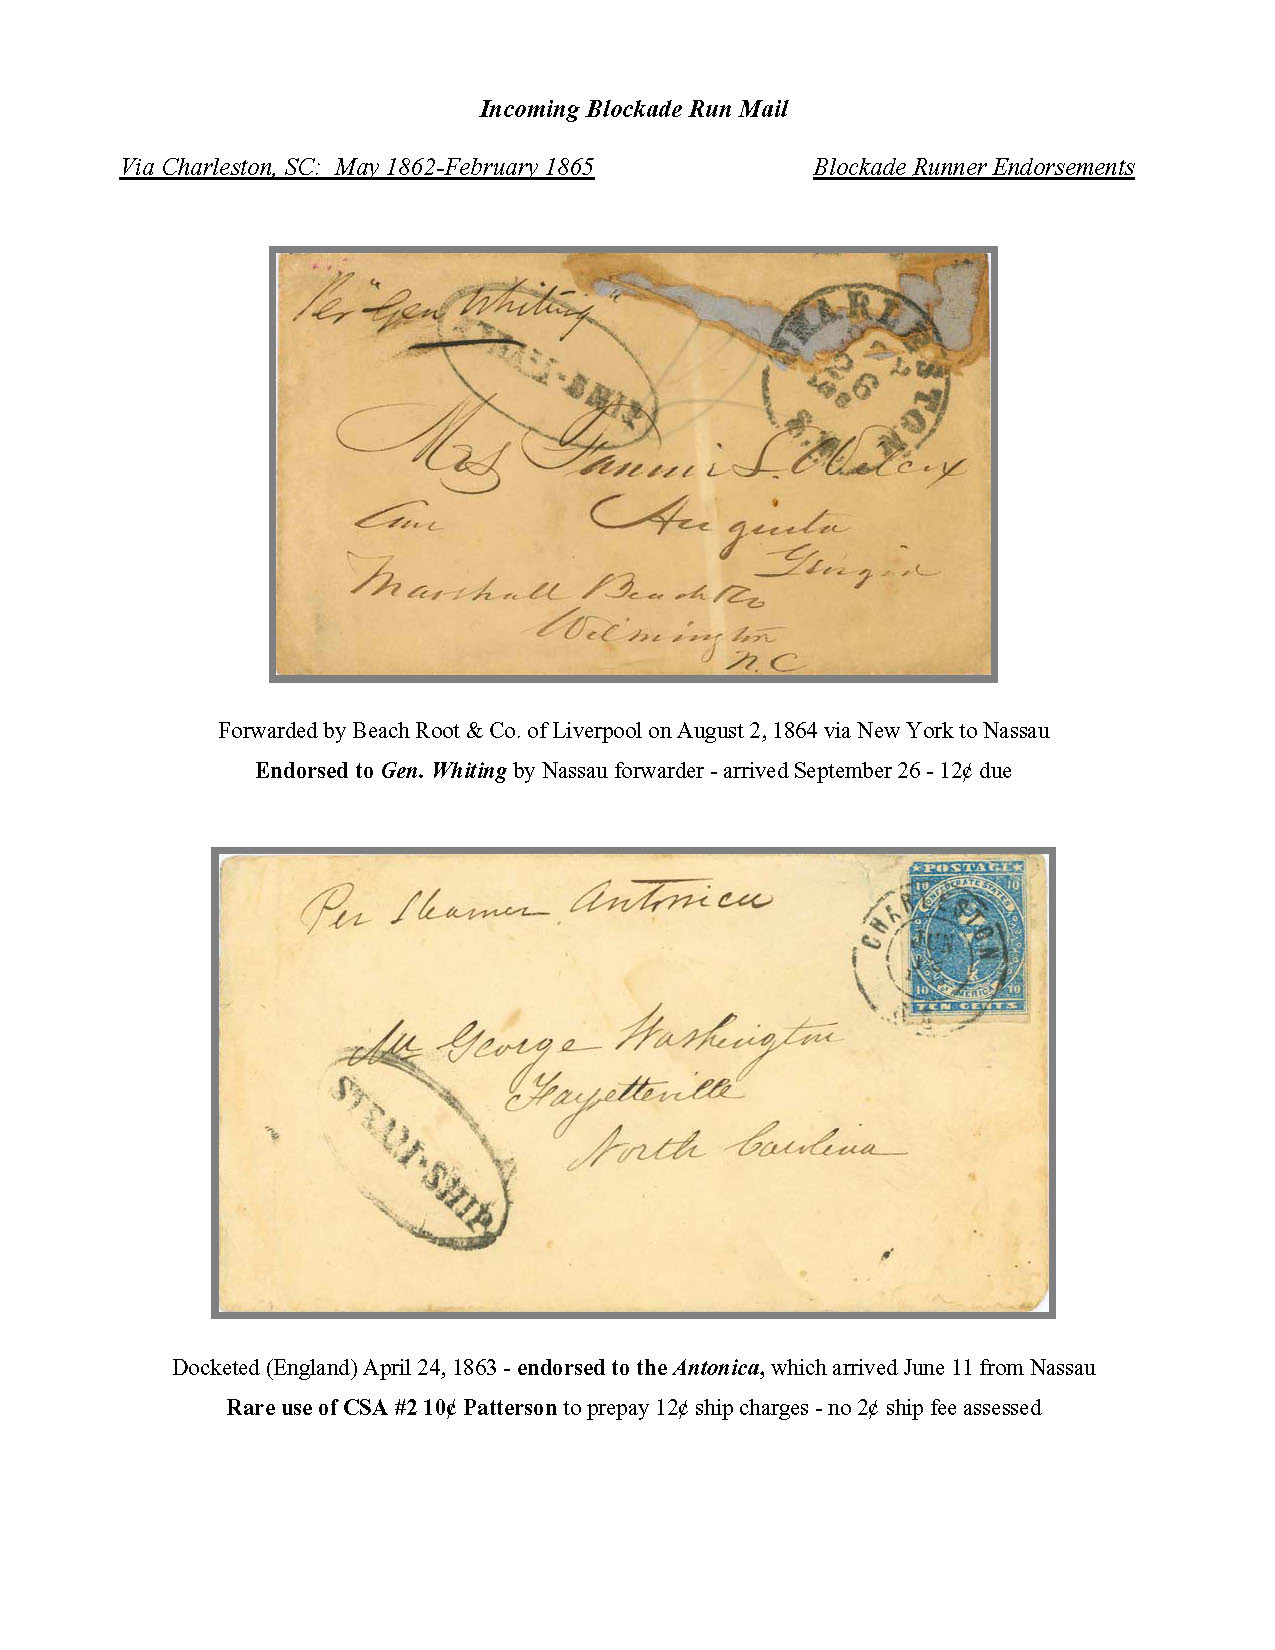 Incoming Blockade Run Mail
Via Charleston, SC: May 1862-February 1865
Blockade Runner Endorsements
Per "Gen Whiting"
STEAM-SHIP
CHARLESTON
26
Mrs Fannie L. Wilcox
Care
Augusta
Georgia
Marshall Beach &Co
Wilmington
N.C
Forwarded by Beach Root & Co. of Liverpool on August 2, 1864 via New York to Nassau
Endorsed to Gen. Whiting by Nassau forwarder - arrived September 26 - 12¢ due
Per Steamer Antonica
POSTAGE
10 10
CONFEDERATE STATES
OF AMERICA
10 10
TEN CENTS
CHARLESTON
JUN
Mr George Washington
Fayetteville
North Carolina
STEAM-SHIP
Docketed (England) April 24, 1863 - endorsed to the Antonica, which arrived June 11 from Nassau
Rare use of CSA #2 10¢ Patterson to prepay 12¢ ship charges - no 2¢ ship fee assessed